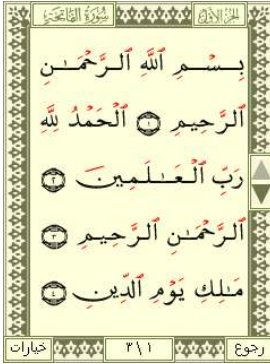 الجزء الأول سورة الفاتحة
بِسْمِ ٱللَّهِ ٱلرَّحْمَـٰنِ
ٱلرَّحِيمِ ١ ٱلْحَمْدُ لِلَّهِ
رَبِّ ٱلْعَـٰلَمِينَ ٢
ٱلرَّحْمَـٰنِ ٱلرَّحِيمِ ٣
مَـٰلِكِ يَوْمِ ٱلدِّينِ ٤
رجوع ٣\١ خيارات